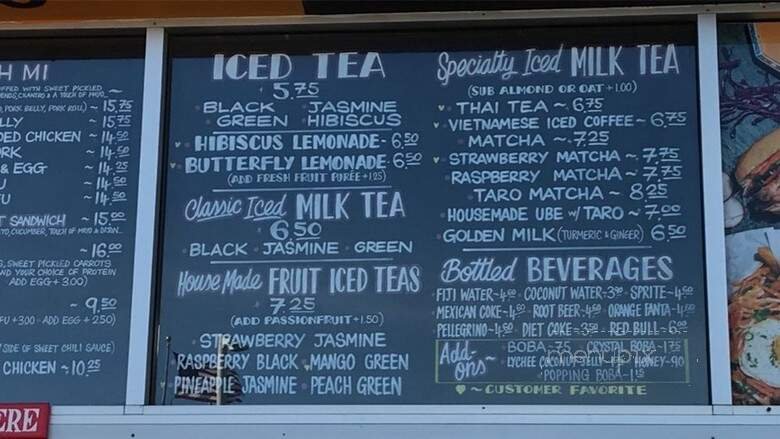 H MI
~ 15.75
LLY ~ 15.75
DED CHICKEN ~ 14.50
~ 14.50
& EGG ~ 14.25
~ 14.50
~ 14.25
T SANDWICH ~ 15.00
~ 16.00
SWEET PICKLED CARROTS
ND YOUR CHOICE OF PROTEIN
ADD EGG +3.00)
~ 9.50
FU +3.00 ADD EGG +2.50)
SIDE OF SWEET CHILI SAUCE)
CHICKEN ~ 10.25
ERE
ICED TEA
5.75
BLACK · JASMINE
GREEN · HIBISCUS
HIBISCUS LEMONADE - 6.50
BUTTERFLY LEMONADE - 6.50
(ADD FRESH FRUIT PURÉE +1.25)
Classic Iced MILK TEA
6.50
BLACK · JASMINE · GREEN
House Made FRUIT ICED TEAS
7.25
(ADD PASSIONFRUIT +1.50)
STRAWBERRY JASMINE
RASPBERRY BLACK · MANGO GREEN
PINEAPPLE JASMINE · PEACH GREEN
Specialty Iced MILK TEA
(SUB ALMOND OR OAT +1.00)
THAI TEA ~ 6.75
VIETNAMESE ICED COFFEE ~ 6.75
MATCHA ~ 7.25
STRAWBERRY MATCHA ~ 7.75
RASPBERRY MATCHA ~ 7.75
TARO MATCHA ~ 8.25
HOUSEMADE UBE W/ TARO ~ 7.00
GOLDEN MILK (TURMERIC & GINGER) 6.50
Bottled BEVERAGES
FIJI WATER - 4.50 COCONUT WATER - 3.90 SPRITE - 4.50
MEXICAN COKE - 4.50 ROOT BEER - 4.50 ORANGE FANTA - 4.50
PELLEGRINO - 4.50 DIET COKE - 3.50 RED BULL - 6.00
Add-ons ~ BOBA - .75 CRYSTAL BOBA - 1.75
LYCHEE COCONUT JELLY HONEY - .90
POPPING BOBA - 1.15
♥ ~ CUSTOMER FAVORITE
menupix